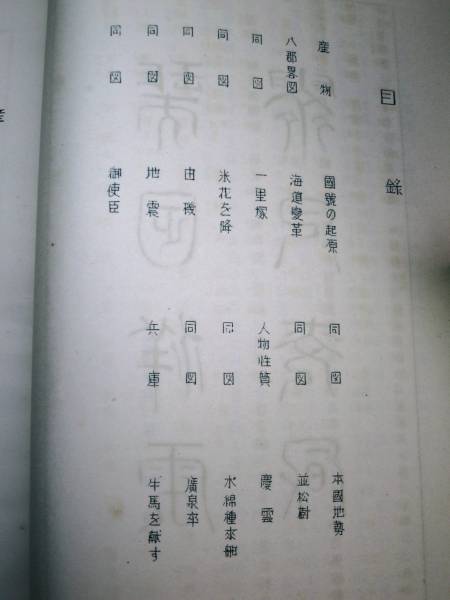 目錄
産物 國號の起原 同図 本國地勢
八郡畧図 海道變革 同図 並松樹
同図 一里塚 人物性質 慶雲
同図 米花を降 同図 木綿種來舶
同図 由磯 同図 廣泉卒
同図 地震 兵庫 牛馬を献す
同図 御使臣